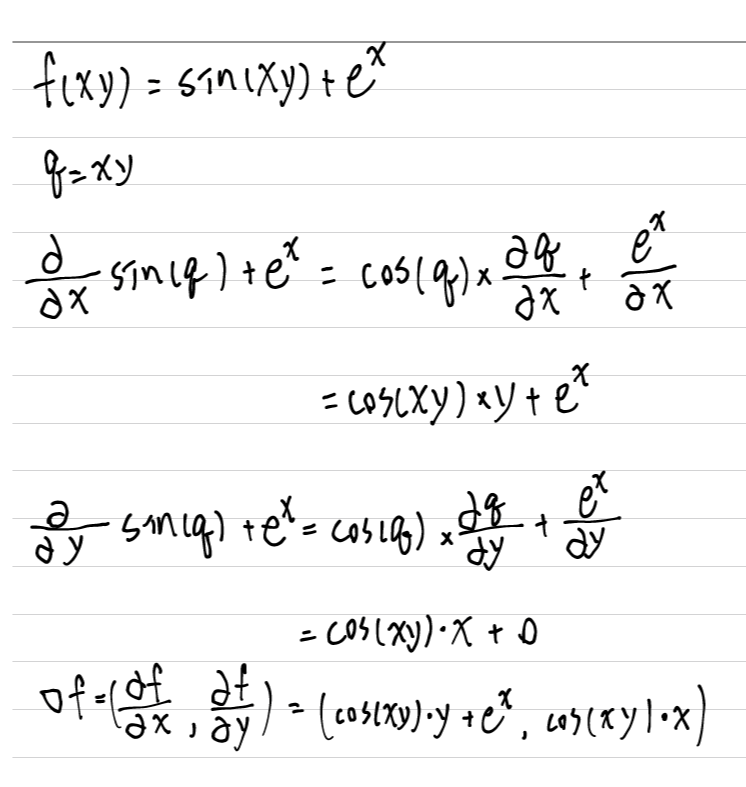 f(xy) = sin(xy) + e^x
q = xy
∂/∂x sin(q) + e^x = cos(q) × ∂q/∂x + e^x/∂x
= cos(xy) × y + e^x
∂/∂y sin(q) + e^x = cos(q) × ∂q/∂y + e^x/∂y
= cos(xy)·x + 0
∇f = (∂f/∂x, ∂f/∂y) = (cos(xy)·y + e^x, cos(xy)·x)